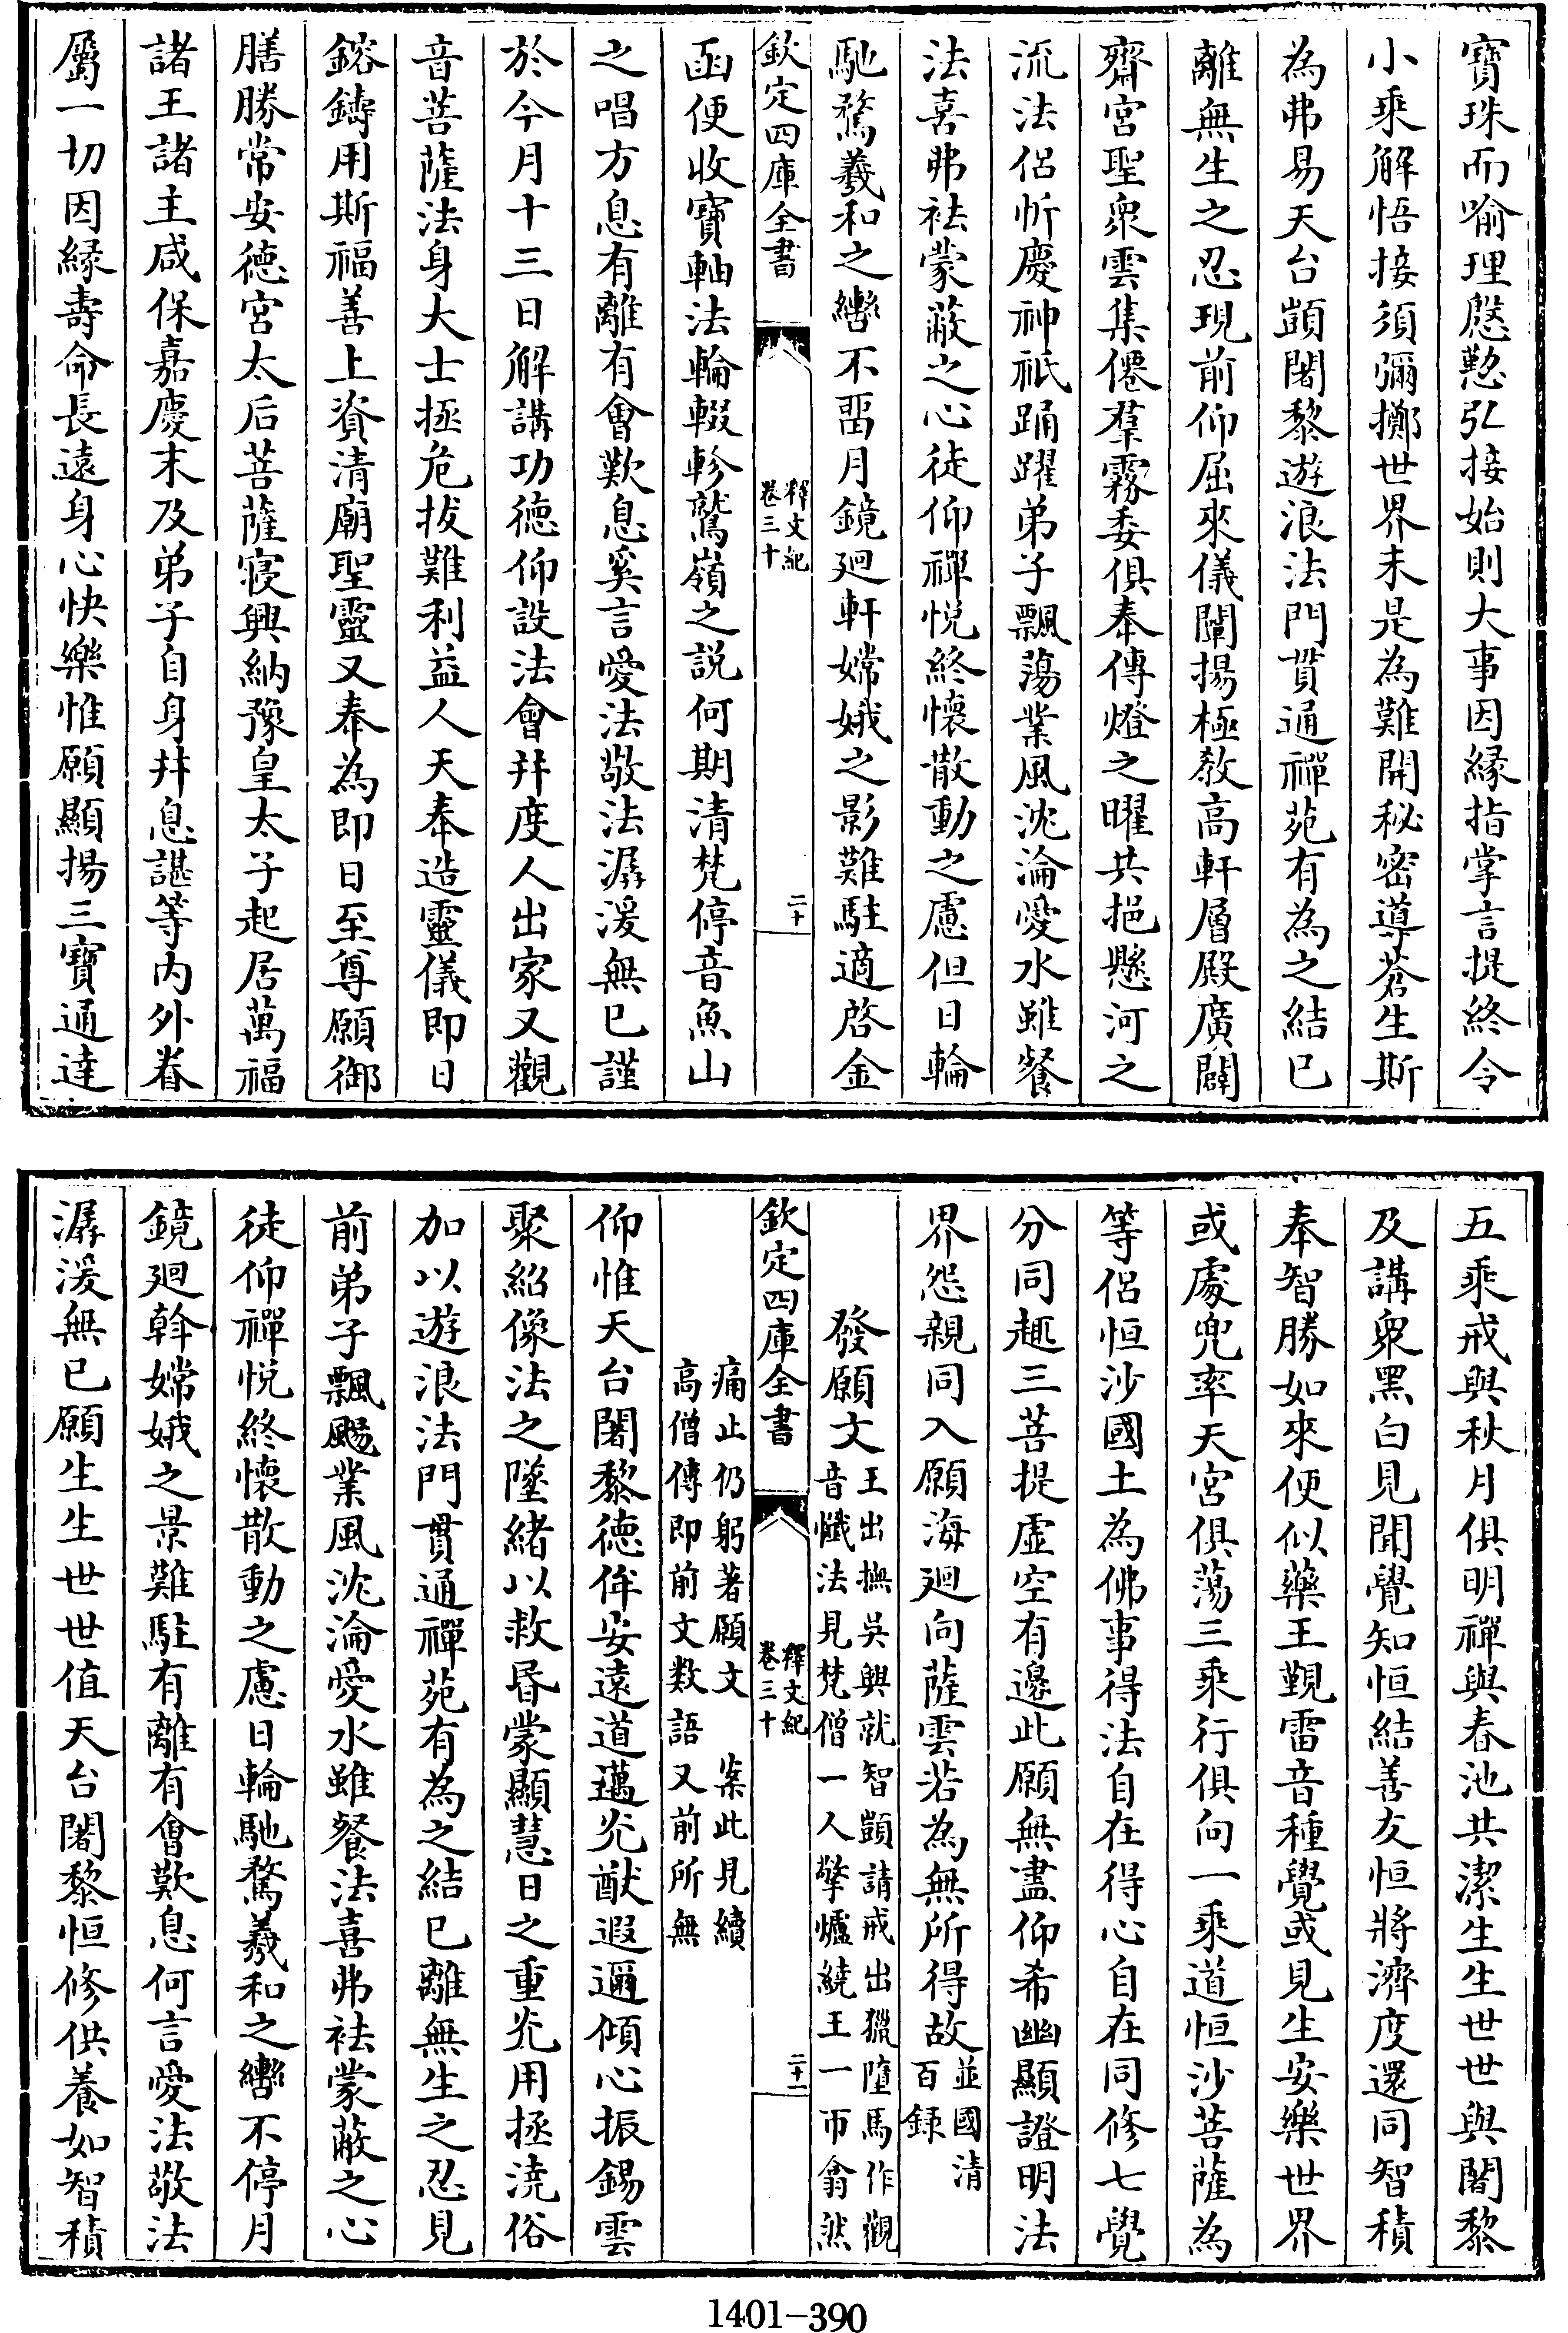 寶珠而喻理慇懃弘接始則大事因緣指掌言提終令
小乘解悟接須彌擲世界未是為難開秘密導蒼生斯
為弗易天台顗闍黎遊浪法門貫通禪苑有為之結已
離無生之忍現前仰屈來儀闡揚極教高軒層殿廣闢
齋宮聖衆雲集僊羣霧委俱奉傳燈之曜共挹懸河之
流法侶忻慶神祇踊躍弟子飄蕩業風沈淪愛水雖餐
法喜弗袪蒙蔽之心徒仰禪悅終懷散動之慮但日輪
馳騖羲和之轡不畱月鏡廻軒嫦娥之影難駐適啓金
欽定四庫全書 釋文紀卷三十 二十
函便收寶軸法輪輟軫鷲嶺之說何期清梵停音魚山
之唱方息有離有會歎息奚言愛法敬法潺湲無已謹
於今月十三日解講功德仰設法會幷度人出家又觀
音菩薩法身大士拯危拔難利益人天奉造靈儀即日
鎔鑄用斯福善上資清廟聖靈又奉為即日至尊願御
膳勝常安德宮太后菩薩寢興納豫皇太子起居萬福
諸王諸主咸保嘉慶末及弟子自身幷息諶等內外眷
屬一切因緣壽命長遠身心快樂惟願顯揚三寶通達
五乘戒與秋月俱明禪與春池共潔生生世世與闍黎
及講衆黑白見聞覺知恒結善友恒將濟度還同智積
奉智勝如來便似藥王覲雷音種覺或見生安樂世界
或處兜率天宮俱蕩三乘行俱向一乘道恒沙菩薩為
等侶恒沙國土為佛事得法自在得心自在同修七覺
分同趣三菩提虛空有邊此願無盡仰希幽顯證明法
界怨親同入願海廻向薩雲若為無所得故並國清百錄
發願文王出撫吳興就智顗請戒出獵墮馬作觀音懺法見梵僧一人擎爐繞王一帀翕然
欽定四庫全書 釋文紀卷三十 二十一
痛止仍躬著願文 案此見續高僧傳即前文数語又前所無
仰惟天台闍黎德侔安遠道邁光猷遐邇傾心振錫雲
聚紹像法之墜緒以救昏蒙顯慧日之重光用拯澆俗
加以遊浪法門貫通禪苑有為之結已離無生之忍見
前弟子飄颺業風沈淪愛水雖餐法喜弗袪蒙蔽之心
徒仰禪悅終懷散動之慮日輪馳騖羲和之轡不停月
鏡廻斡嫦娥之景難駐有離有會歎息何言愛法敬法
潺湲無已願生生世世值天台闍黎恒修供養如智積
1401-390